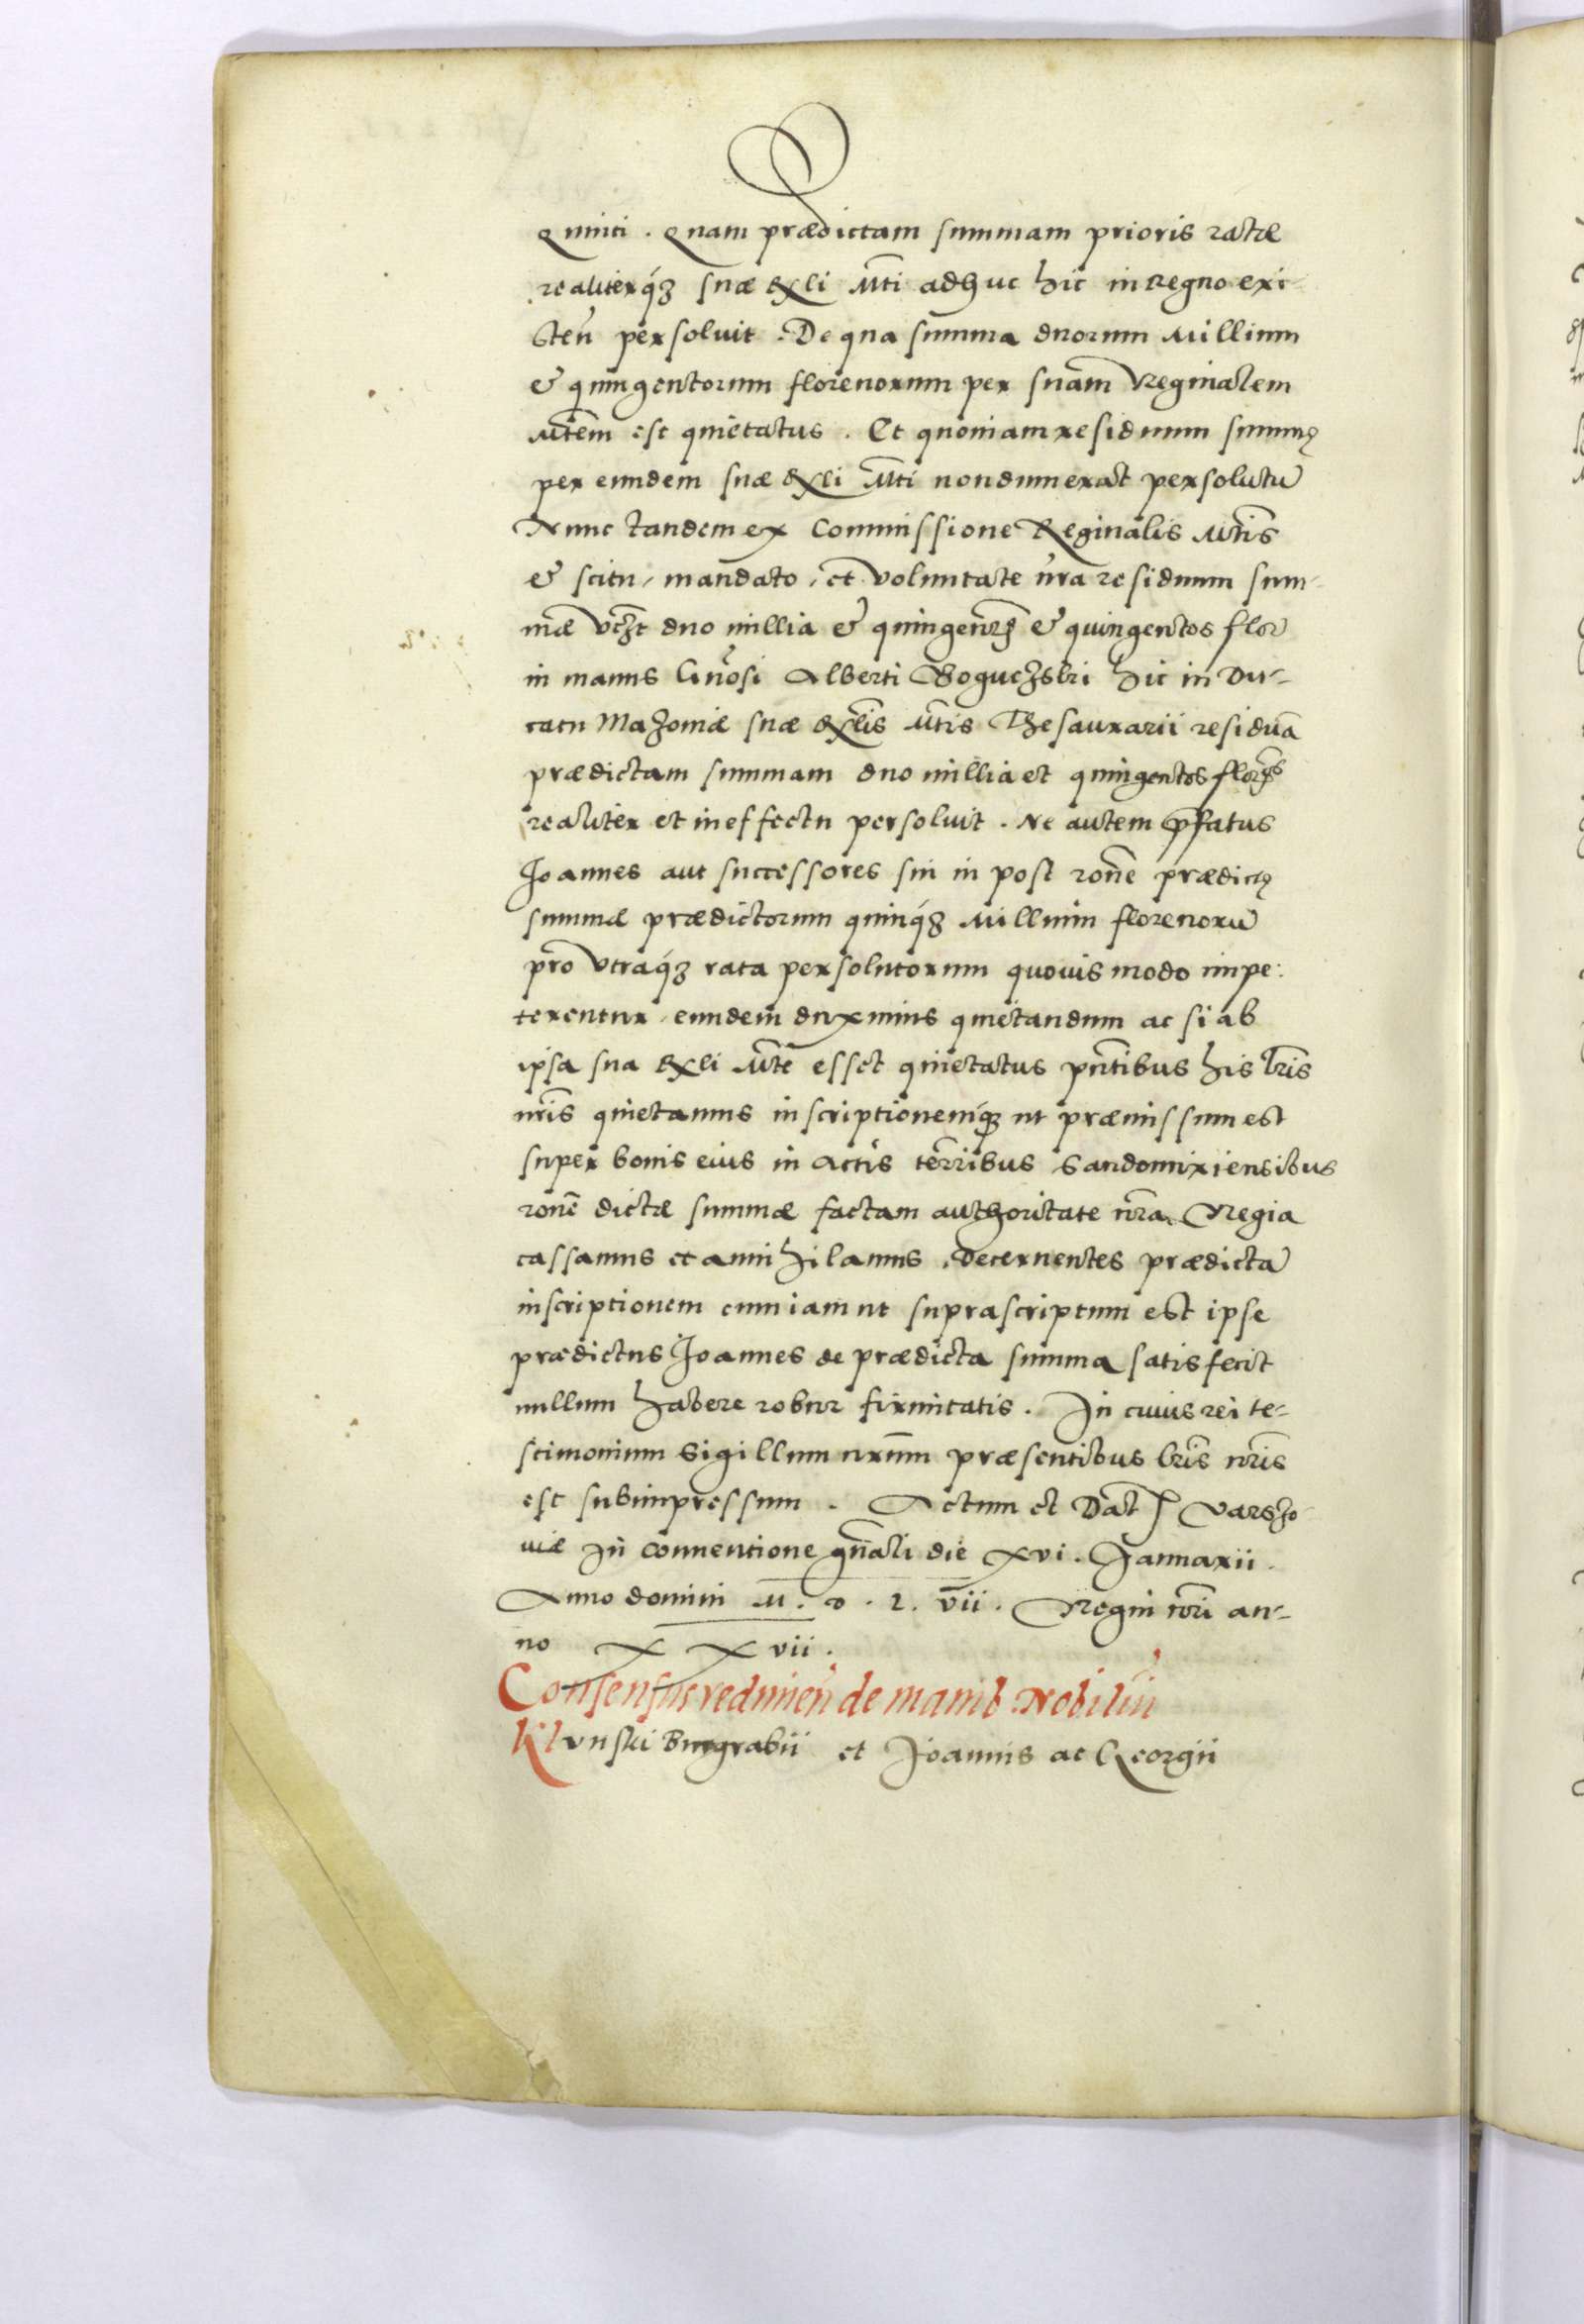 quinti . Quam prædictam summam prioris ratæ
realiterq́ꝫ suæ Rxli Mti adhuc hic in Regno exi-
steñ persoluit . De qua summa duorum Millium
& quingentorum florenorum per suam Reginalem
Mtem est quietatus . Et quoniam residuum summę
per eundem suæ Rxli Mti nondum erat persolutũ
Nunc tandem ex Commissione Reginalis Mtis
& scitu, mandato, et voluntate nra residuum sum-
mæ vczt duo millia & & quingentos flor
in manus Gnosi Alberti Boguczsky hic in Du-
catu Mazoniæ suæ Rxlis Mtis Thesaurarii residuã
prædictam summam duo millia et quingentos
realiter et in effectu persoluit . Ne autem pfatus
Joannes aut successores sui in post rone prædictę
summæ prædictorum quinq́ꝫ Millium florenorũ
pro vtraq́ꝫ rata persolutorum quouis modo impe-
terentur, eundem duximus quietandum ac si ab
ipsa sua Rxli Mte esset quietatus pntibus his lris
nris quietamus inscriptionemq́ꝫ ut præmissum est
super bonis eius in Actis terribus Sandomiriensibus
rone dictæ summæ factam authoritate nra Regia
cassamus et annihilamus . Decernentes prædictã
inscriptionem cum iam ut suprascriptum est ipse
prædictus Joannes de prædicta summa satisfecit
nullum habere robur firmitatis . In cuius rei te-
stimonium Sigillum nrum præsentibus lris nris
est subimpressum . Actum et Dat Varszo-
uiæ in conuentione gnali die xvi . Januarii .
Anno domini M . D . L . vii . Regni nri an-
no X X vii .
Consensus redimeñ de manib Nobiliũ
Klunski Burgrabii et Joannis ac Georgii